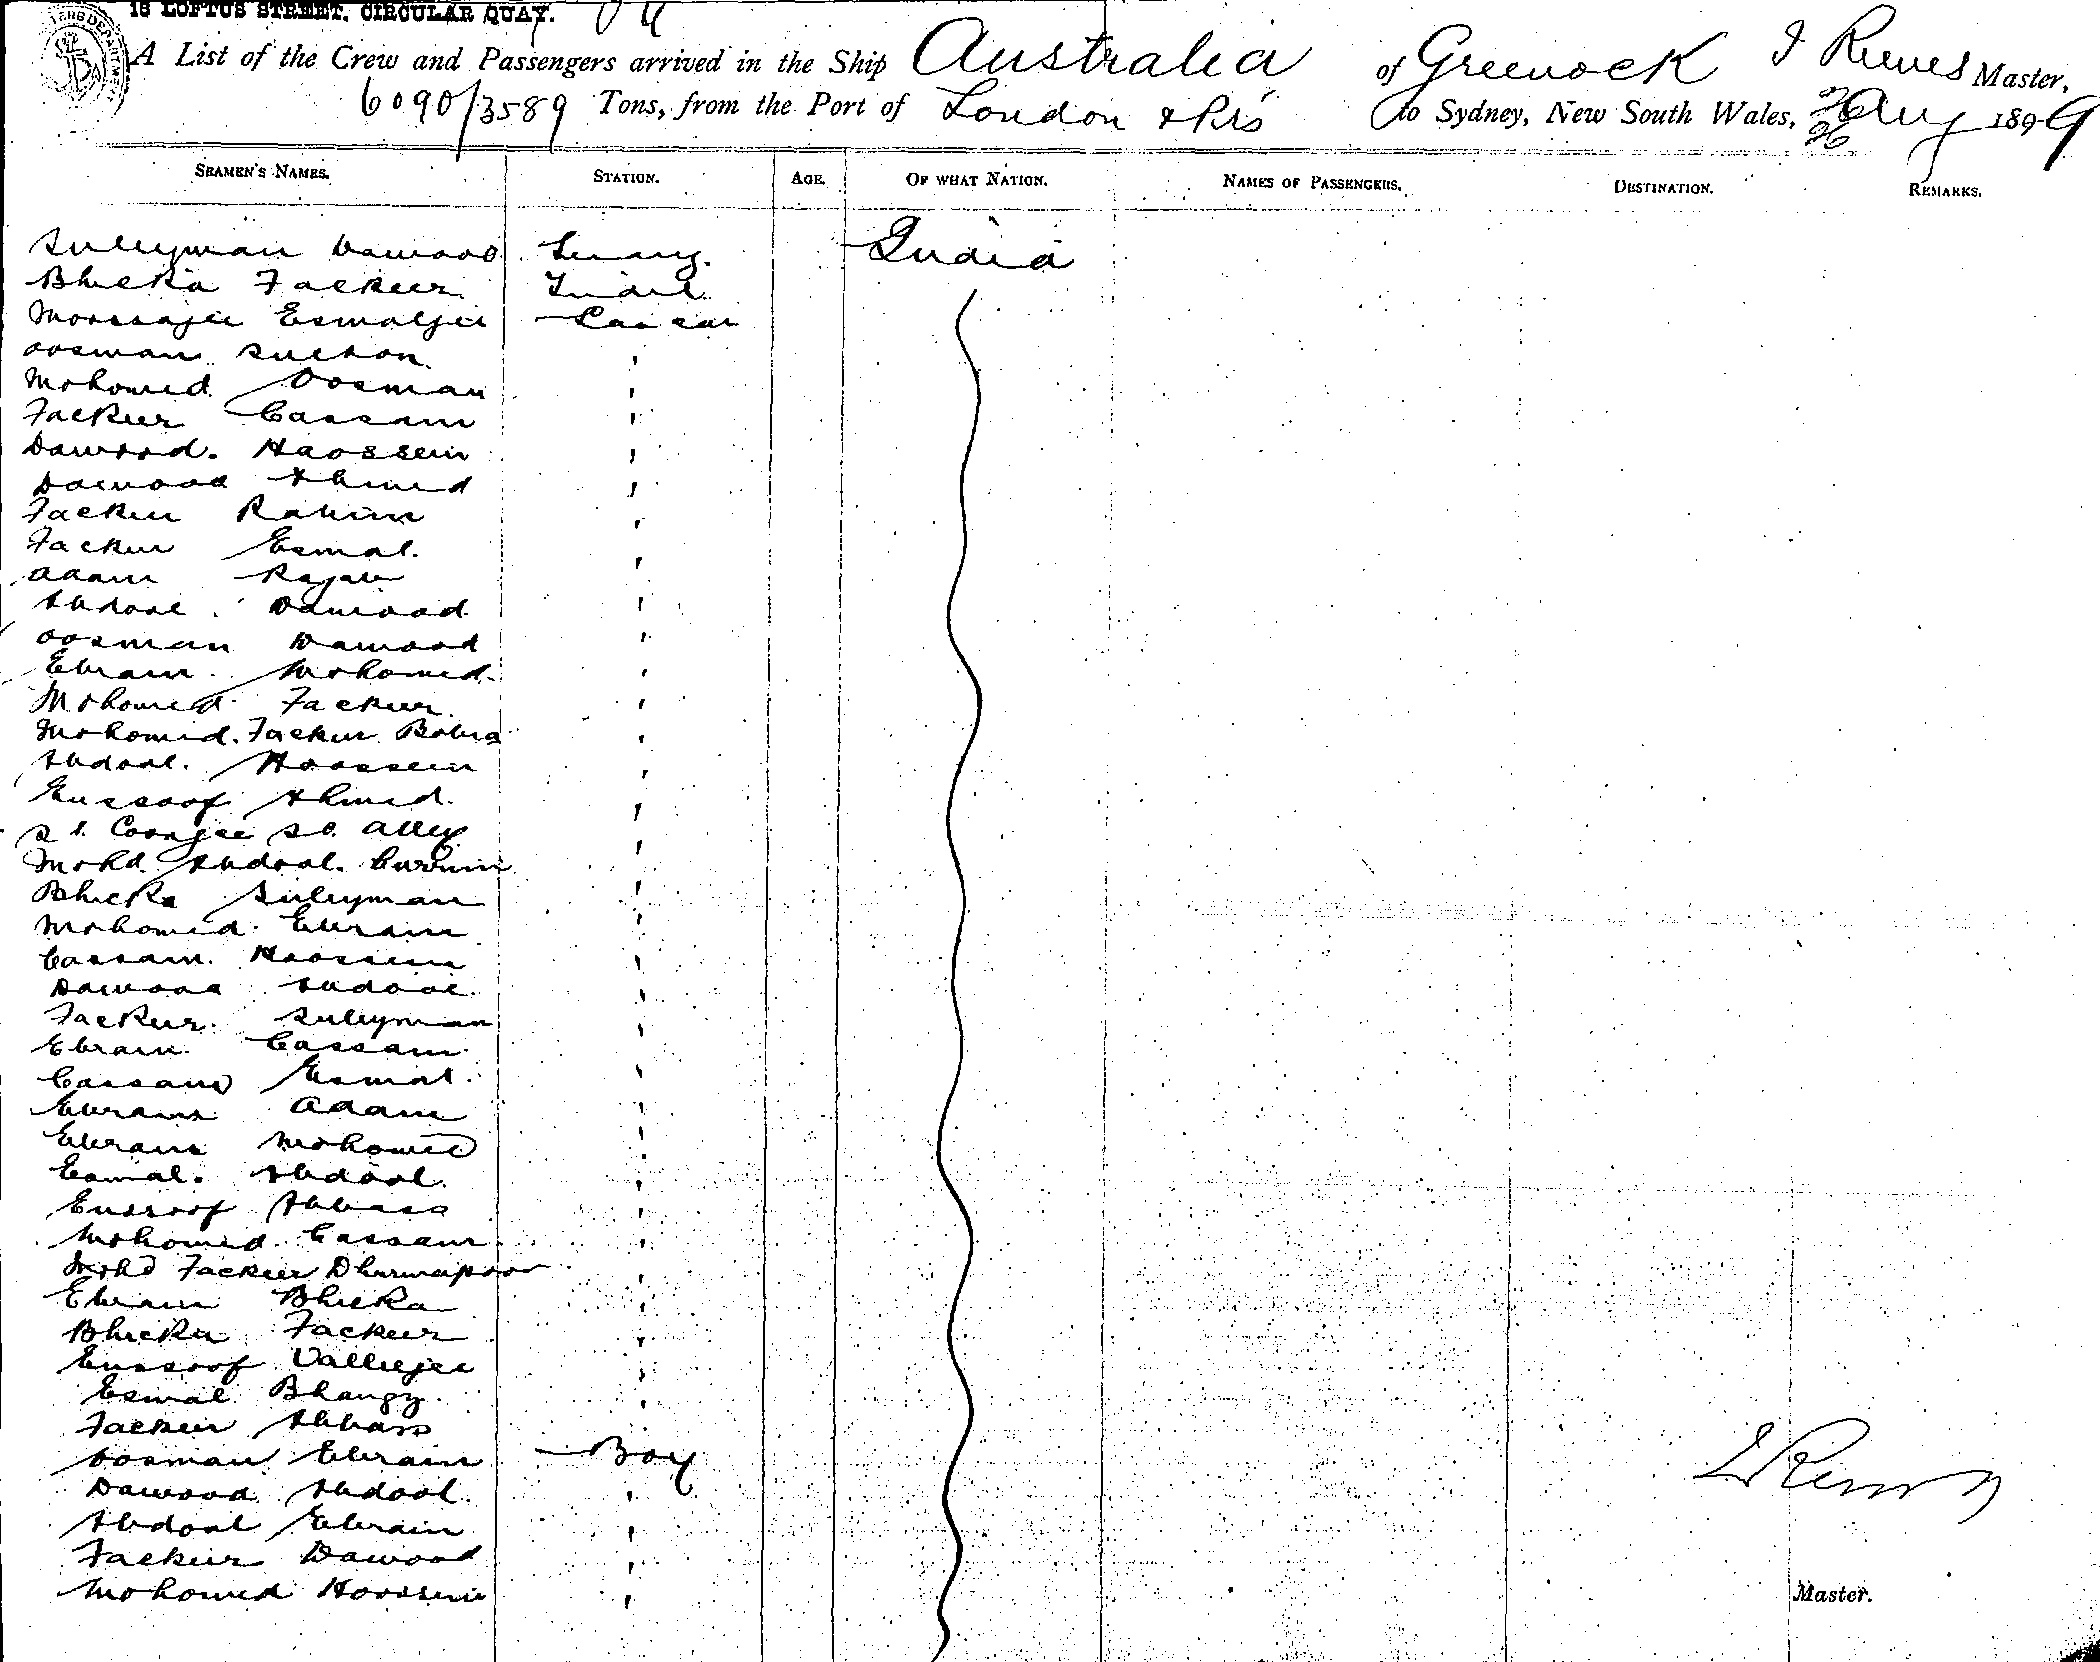 18 LOFTUS STREET, CIRCULAR QUAY.
A List of the Crew and Passengers arrived in the Ship Australia of Greenock I Reeves Master,
6090/3589 Tons, from the Port of London & Prts to Sydney, New South Wales, 26 Aug 1899
SEAMEN'S NAMES. STATION. AGE. OF WHAT NATION. NAMES OF PASSENGERS. DESTINATION. REMARKS.
Suleyman Dawood Serang. India
Bhicka Fackeer Tindel
Moossajee Esmaljee Lascar
Oosman Suehon "
Mohomed Oosman "
Fackeer Cassam "
Dawood. Hoossein "
Dawood Ahmed "
Fackeer Rahim "
Fackeer Esmal. "
Adam Rajab "
Abdool Dawood "
Oosman Dawood "
Ebram Mohomed. "
Mohomed Fackeer "
Mohomed. Fackeer Bobra "
Abdool. Hoossein "
Eussoof Ahmed. "
Coonjee Alley "
Mohd. Abdool. Currim "
Bhicka Suleyman "
Mohomed Ebram "
Cassam. Hoossein "
Dawood Abdool. "
Fackeer Suleyman "
Ebram Cassam "
Cassam Esmal. "
Ebram Adam "
Ebram Mohomed "
Esmal. Abdool. "
Eussoof Abbass "
Mohomed Cassam "
Mohd Fackeer Dhurmapoor "
Ebram Bhicka "
Bhicka Fackeer "
Eussoof Valleejee "
Esmal Bhangy. "
Fackeer Abbass "
Oosman Ebram Boy
Dawood Abdool "
Abdool Ebram "
Fackeer Dawood "
Mohomed Hoossein "
I Reeves
Master.